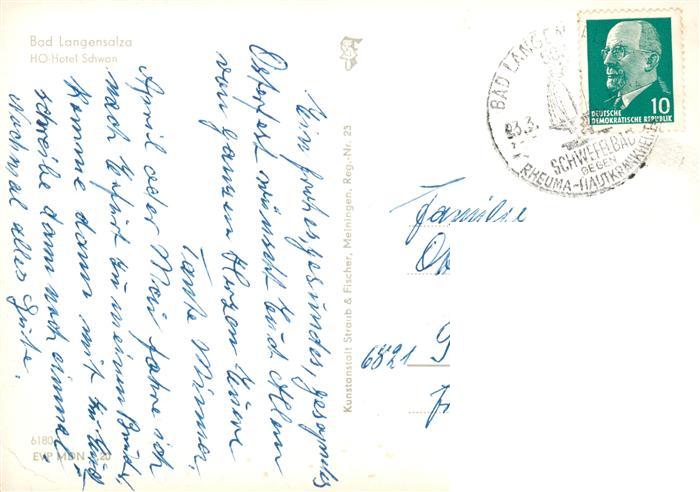 Bad Langensalza
HO-Hotel Schwan
Ein frohes, gesundes, gesegnetes
Osterfest wünscht Euch Allen
von ganzem Herzen Eure
Tante Minna.
April oder Mai fahre ich
nach Erfurt zu meinem Bruder,
komme dann mit zu Euch
schreibe dann noch einmal.
Nochmal alles Gute.
6180
EVP MDN 0,20
Kunstanstalt Straub & Fischer, Meiningen, Reg.-Nr. 23
BAD LANGEN
23.3.
SCHWEFELBAD
GEGEN
RHEUMA-HAUTKRANKHEITEN
10
DEUTSCHE
DEMOKRATISCHE REPUBLIK
Familie
6821